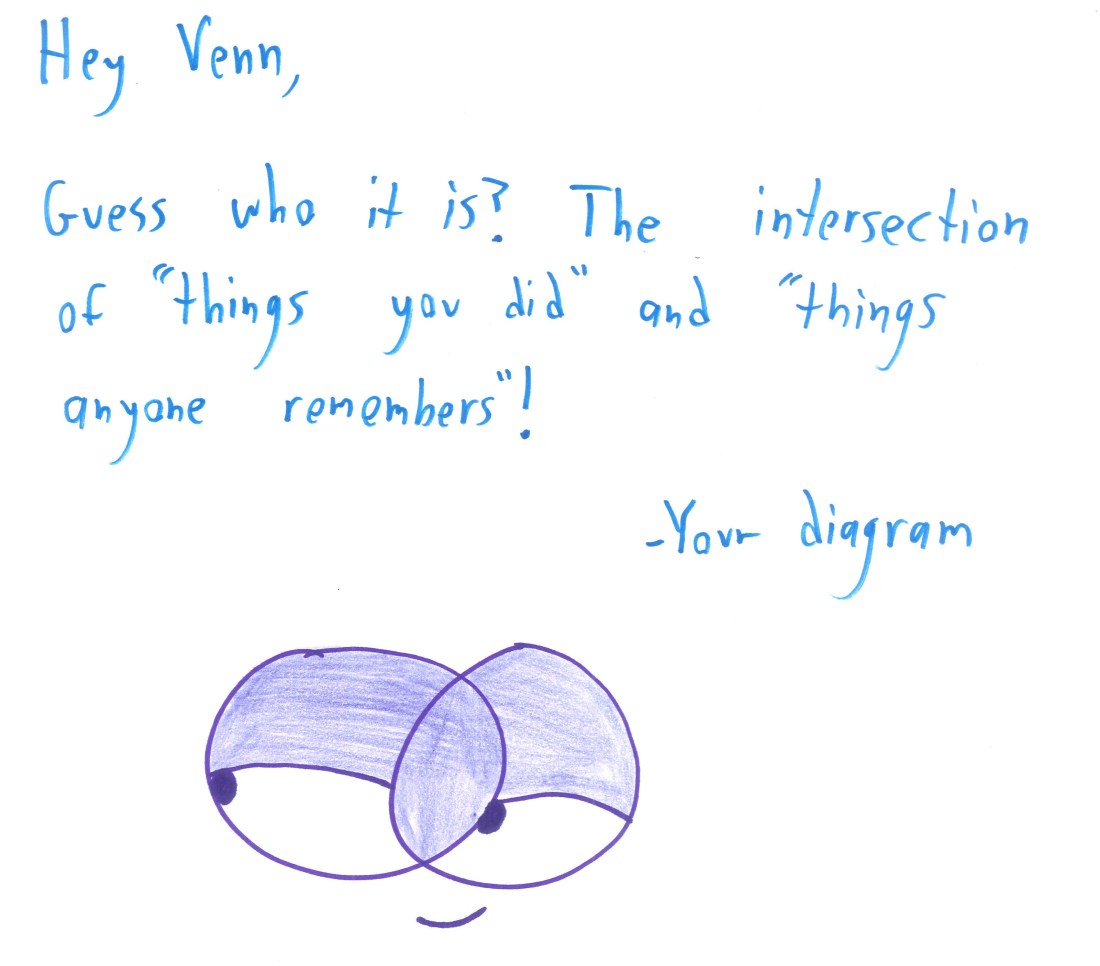 Hey Venn,
Guess who it is? The intersection
of "things you did" and "things
anyone remembers"!
-Your diagram